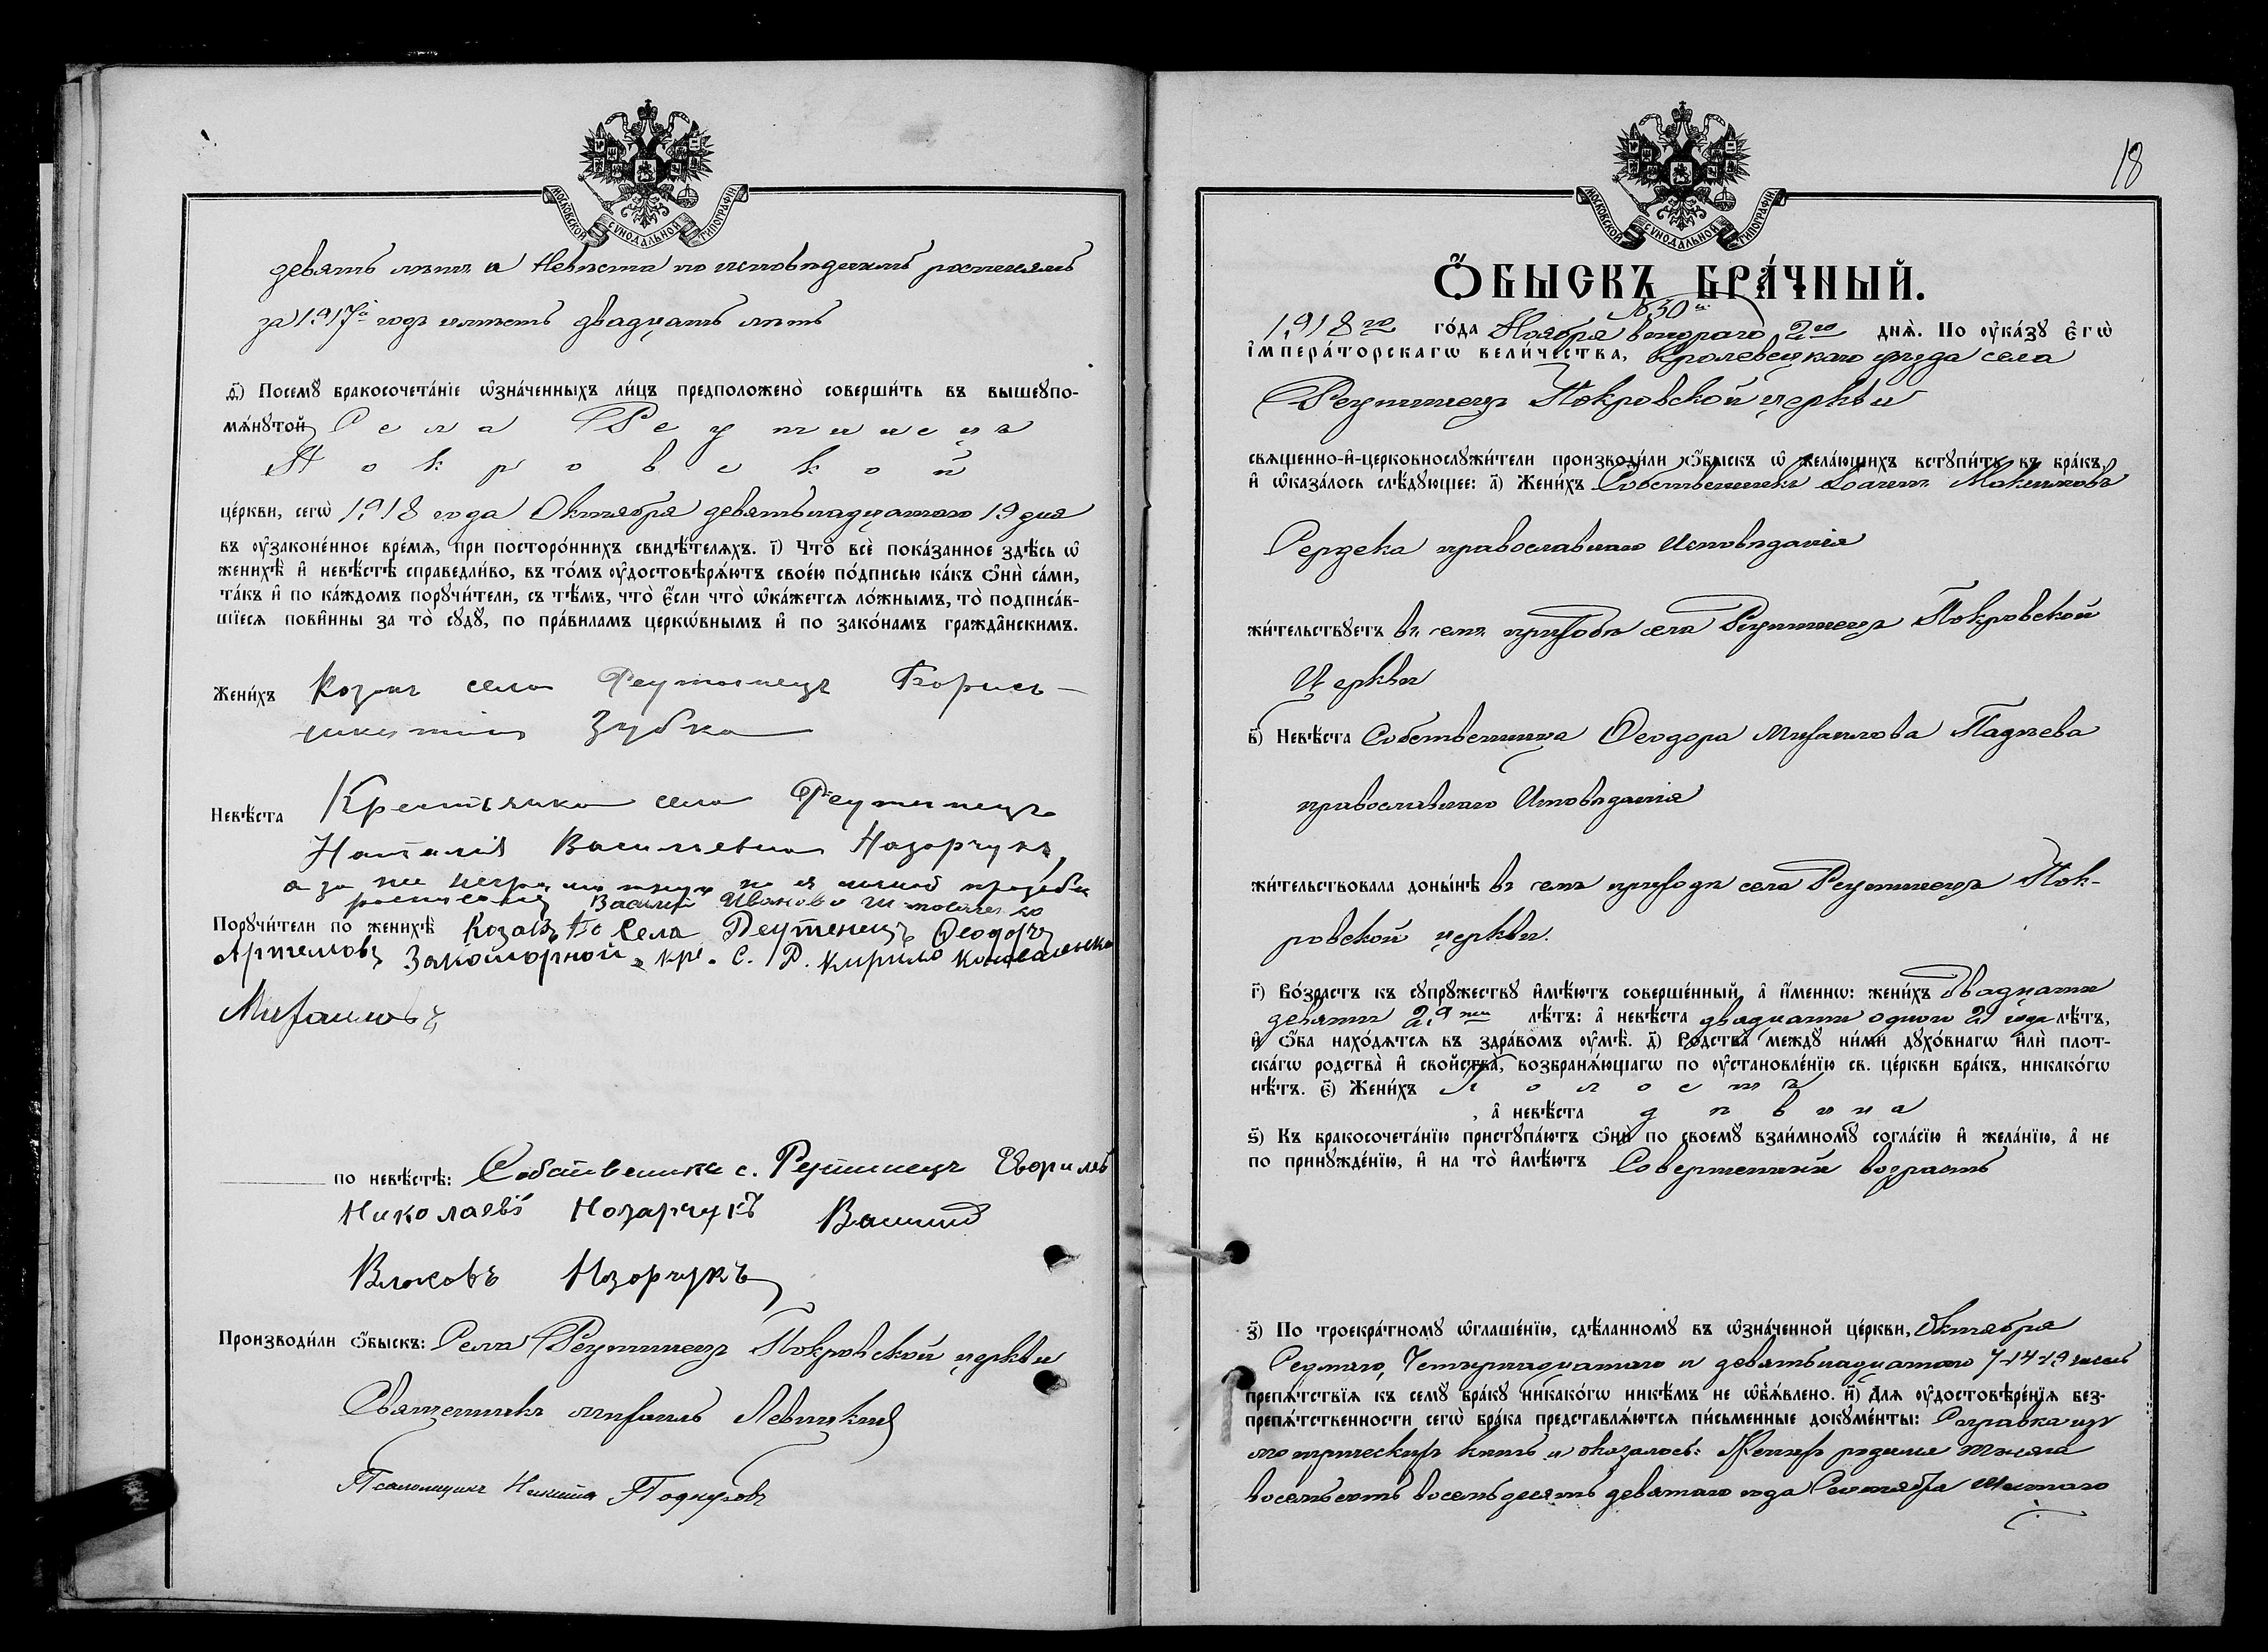 МОСКОВСКОЙ СѴНОДАЛЬНОЙ ТИПОГРАФІИ
девять лѣтъ а Невѣста по исповѣднымъ росписямъ
за 1917й годъ имѣетъ двадцать лѣтъ
д҃) Посемꙋ бракосочета́ніе ѡ҆зна́ченныхъ ли́цъ предположено̀ соверши́ть въ вышеꙋпо-
мѧ́нꙋтой Села Реутинецъ
Покровской
це́ркви, сегѡ̀ 1918 года Октября девятьнадцатого 19 дня
въ ᲂу҆законе́нное вре́мѧ, при посторо́ннихъ свидѣ́телѧхъ. і҃) Что̀ всѐ пока́занное здѣ́сь ѡ҆
женихѣ̀ и҆ невѣ́стѣ справедли́во, въ то́мъ ᲂу҆достовѣрѧ́ютъ свое́ю по́дписью ка́къ ѻ҆нѝ са́ми,
та́къ и҆ по ка́ждомъ порꙋчи́тели, съ тѣ́мъ, что̀ є҆́сли что̀ ѡ҆ка́жетсѧ ло́жнымъ, то̀ подписа́в-
шїесѧ пови́нны за то̀ сꙋдꙋ̀, по пра́виламъ церкѡ́внымъ и҆ по зако́намъ гражда́нскимъ.
Жени́хъ Козакъ села Реутинецъ Борисъ
Никитинъ Зубко
Невѣ́ста Крестьянка села Реутинецъ
Наталія Васильевна Назарчукъ,
а за нее неграмотную по ея личной просьбѣ
росписался Василій Ивановъ
Порꙋчи́тели по женихѣ̀ Козакъ Села Реутинецъ Ѳеодоръ
Артемовъ Закоморной. кре. С. Р. Кирило Коноваленко
Михаиловъ
по невѣ́стѣ: Собственики с. Реутинецъ Гаврилъ
Николаевъ Назарчукъ Василій
Власовъ Назорчукъ
Производи́ли ѻ҆́быскъ: Села Реутинецъ Покровской церкви
Священникъ Михаилъ Левицкій
Псаломщикъ Никита
18
МОСКОВСКОЙ СѴНОДАЛЬНОЙ ТИПОГРАФІИ
Ѻ҆́БЫСКЪ БРА́ЧНЫЙ.
№30й
1918го го́да Ноября второго 2го днѧ̀. По ᲂу҆ка́зꙋ є҆гѡ̀
і҆мпера́торскагѡ вели́чества, Кролевецкаго уѣзда села
Реутинецъ Покровской церкви
свѧщенно-и҆-церковнослꙋжи́тели производи́ли ѻ҆́быскъ ѡ҆ жела́ющихъ встꙋпи́ть въ бра́къ,
и҆ ѡ҆каза́лось слѣ́дꙋющее: а҃) Жени́хъ Собственникъ Іоаннъ
Сердека православнаго Исповѣданія
жи́тельствꙋетъ въ семъ приходѣ села Реутинецъ Покровской
Церкви
в҃) Невѣ́ста Собственница Ѳеодора Михаилова
православнаго Исповѣданія
жи́тельствовала доны́нѣ въ семъ приходѣ села Реутинецъ Пок-
ровской церкви.
г҃) Во́зрастъ къ сꙋпрꙋ́жествꙋ и҆мѣ́ютъ соверше́нный, а҆ и҆́меннѡ: жени́хъ двадцати
девяти 29ти лѣ́тъ: а҆ невѣ́ста двадцати одного 21 года лѣ́тъ,
и҆ ѻ҆́ба нахо́дѧтсѧ въ здра́вомъ ᲂу҆мѣ̀. д҃) Родства̀ междꙋ̀ ни́ми дꙋхо́внагѡ и҆лѝ плот-
ска́гѡ родства̀ и҆ свойства̀, возбранѧ́ющагѡ по ᲂу҆становле́нїю св. це́ркви бра́къ, никако́гѡ
нѣ́тъ. є҃) Жени́хъ холостъ
, а҆ невѣ́ста дѣвица
ѕ҃) Къ бракосочета́нїю пристꙋпа́ютъ ѻ҆нѝ по своемꙋ̀ взаи́мномꙋ согла́сїю и҆ жела́нїю, а҆ не
по принꙋжде́нїю, и҆ на то̀ и҆мѣ́ютъ Совершенный возрастъ
з҃) По троекра́тномꙋ ѡ҆глаше́нїю, сдѣ́ланномꙋ въ ѡ҆зна́ченной це́ркви, Октября
Седмого, Четырнадцатого и девятьнадцатого 7-14-19 чиселъ
препѧ́тствїѧ къ семꙋ̀ бра́кꙋ никако́гѡ никѣ́мъ не ѡ҆б̾ѧ́влено. и҃) Длѧ ᲂу҆достовѣре́нїѧ без-
препѧ́тственности сегѡ̀ бра́ка представлѧ́ютсѧ пи́сьменные докꙋме́нты: Справка изъ
метрическихъ книгъ и оказалось: Женихъ родился тысяча
восемьсотъ восемьдесятъ девятаго года Сентября шестаго